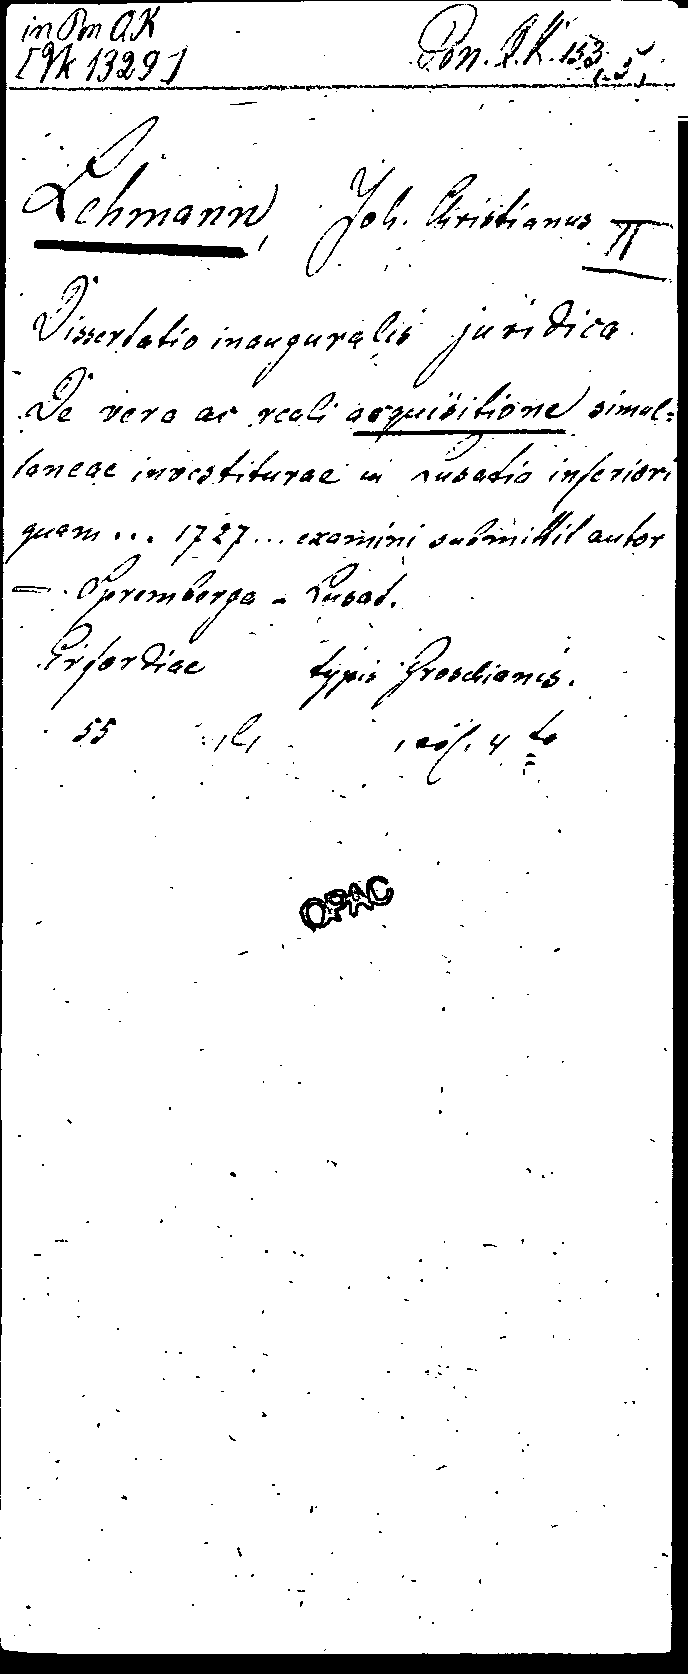 in Pon QK
[Yk 1329]
Pon. Q.K. 153. (5)
Lehmann, Joh. Christianus II
Dissertatio inauguralis juridica
De vera ac reali acquisitione simul=
taneae investiturae in Lusatia inferiori
quam ... 1727 ... examini submittit autor
= Spremberga - Lusat.
Erfordiae typis Groschianis.
55 4 to
OPAC